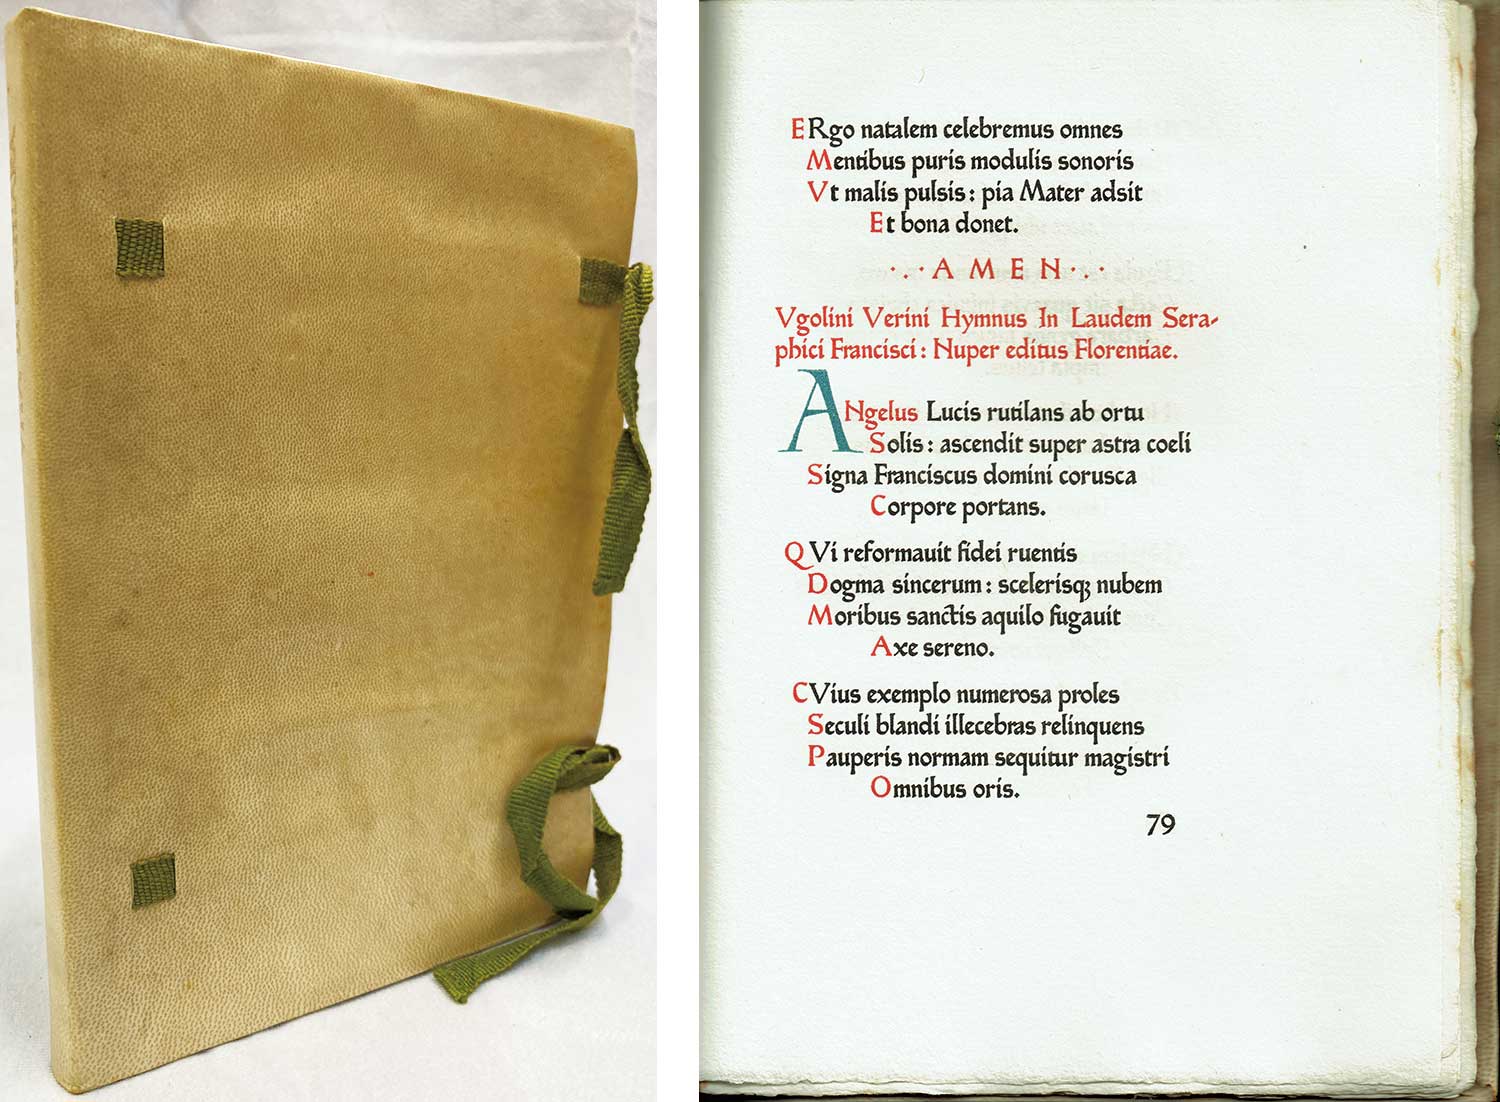 ERgo natalem celebremus omnes
Mentibus puris modulis sonoris
Vt malis pulsis: pia Mater adsit
Et bona donet.
·.·AMEN·.·
Vgolini Verini Hymnus In Laudem Sera-
phici Francisci: Nuper editus Florentiae.
ANgelus Lucis rutilans ab ortu
Solis: ascendit super astra coeli
Signa Franciscus domini corusca
Corpore portans.
QVi reformauit fidei ruentis
Dogma sincerum: scelerisqꝫ nubem
Moribus sanctis aquilo fugauit
Axe sereno.
CVius exemplo numerosa proles
Seculi blandi illecebras relinquens
Pauperis normam sequitur magistri
Omnibus oris.
79